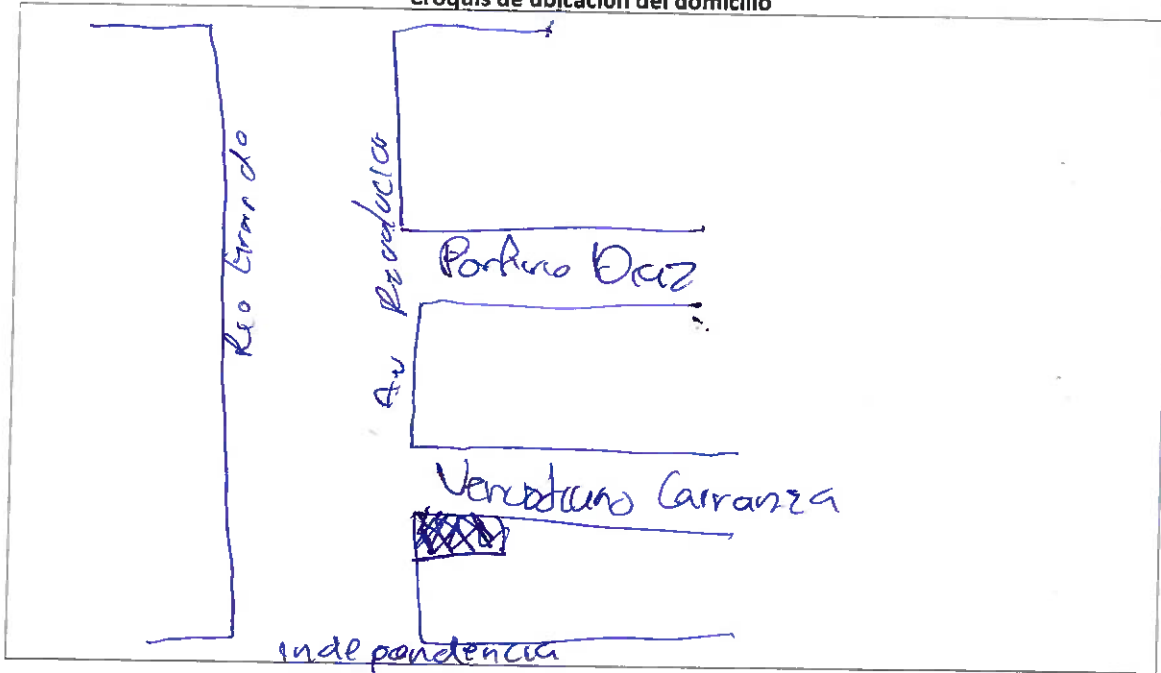 Croquis de ubicación del domicilio
Rio Grande
Av Revolucion
Porfirio Diaz
Venustiano Carranza
independencia